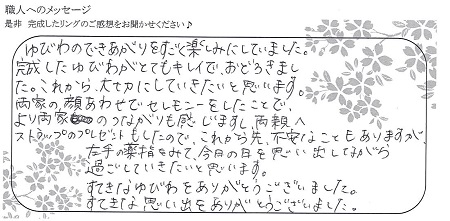 職人へのメッセージ
是非 完成したリングのご感想をお聞かせください♪
ゆびわのできあがりをすごく楽しみにしていました。
完成したゆびわがとてもキレイで、おどろきまし
た。これから、大切にしていきたいと思います。
両家の顔あわせでセレモニーをしたことで、
より両家のつながりも感じますし、両親へ
ストラップのプレゼントもしたので、これから先、不安なこともありますが、
左手の薬指をみて、今日の日を思い出しながら
過ごしていきたいと思います。
すてきなゆびわをありがとうございました。
すてきな思い出をありがとうございました。